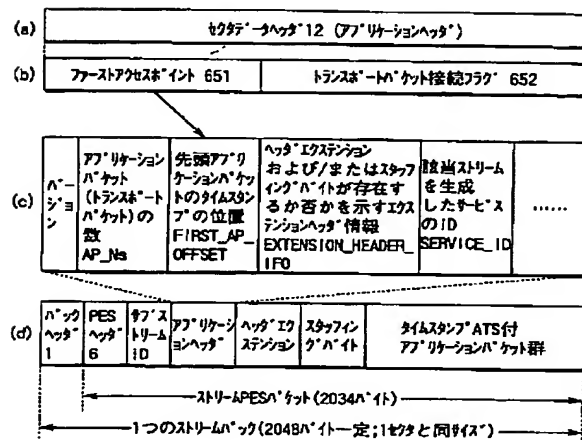 (a)
セクタデータヘッダ12(アプリケーションヘッダ)
(b)
ファーストアクセスポイント 651
トランスポートパケット接続フラグ 652
(c)
バージョン
アプリケーション
パケット
(トランスポート
パケット)の
数
AP_Ns
先頭アプリ
ケーションパケッ
トのタイムスタン
プの位置
FIRST_AP_
OFFSET
ヘッダエクステンション
および/またはスタッフ
ィングバイトが存在す
るか否かを示すエクス
テンションヘッダ情報
EXTENSION_HEADER_
IFO
該当ストリーム
を生成
したサービス
のID
SERVICE_ID
……
(d)
パック
ヘッダ
1
PES
ヘッダ
6
サブス
トリーム
ID
アプリケーシ
ョンヘッダ
ヘッダエク
ステンション
スタッフィン
グバイト
タイムスタンプATS付
アプリケーションパケット群
ストリームPESパケット(2034バイト)
1つのストリームパック(2048バイト一定;1セクタと同サイズ)